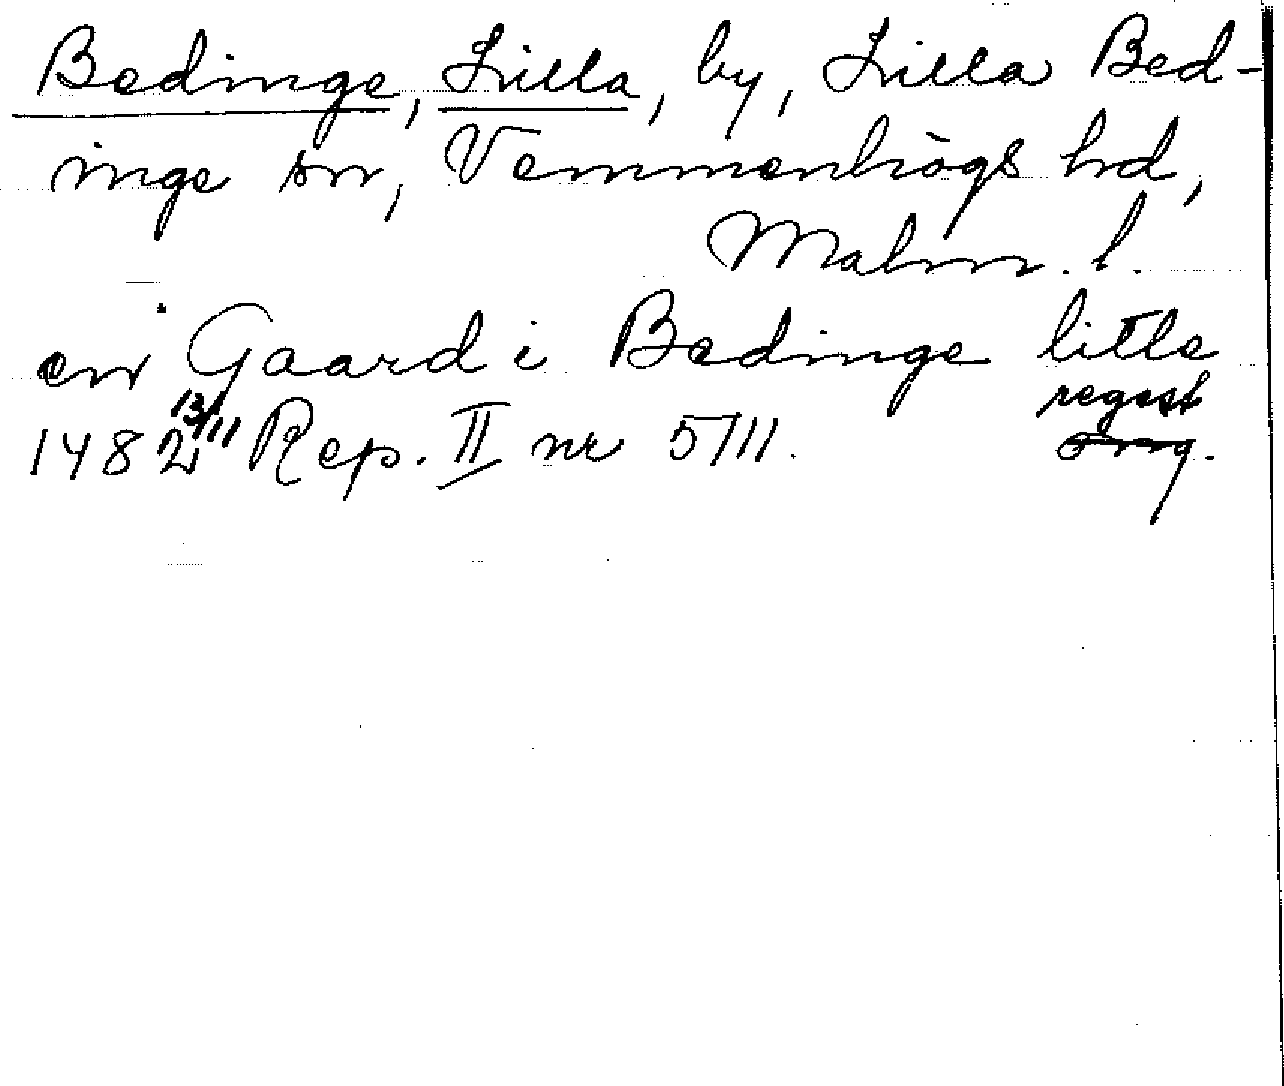 Bedinge, Lilla, by, Lilla Bed-
inge sn, Vemmenhögs hd,
Malm. l.
en Gaard i Bedinge litle
1482 13/11 Rep. II nr 5711. regest
orig.